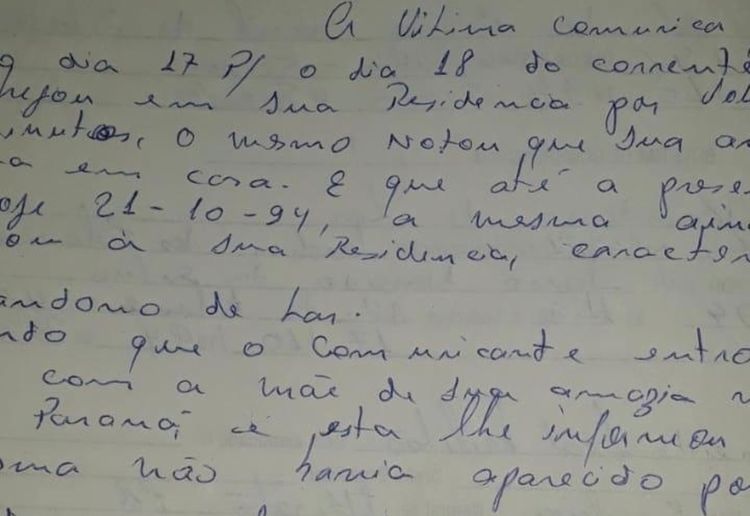 A Vitima comunica
dia 17 P/ o dia 18 do corrente
hegou em sua Residencia por vol
minutos, o mesmo Notou que sua am
a em casa. E que até a prese
oje 21-10-94, a mesma ain
ou à sua Residencia, caracter
andono de Lar.
ndo que o Comunicante entro
com a mãe de sua amazia
Paraná, e esta lhe informou
sma não havia aparecido po